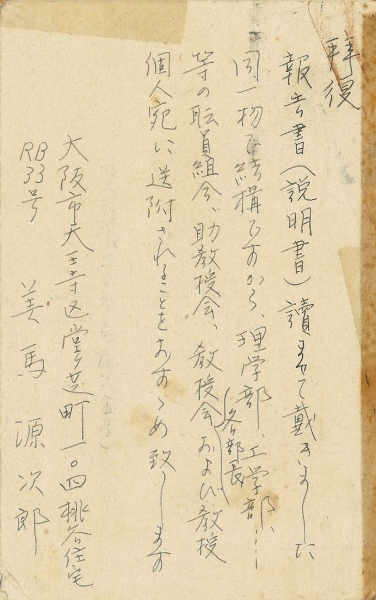 拝復
報告書(説明書)讀ませて戴きました
同一物で結構ですから、理学部、工学部、……
等の職員組合、助教授会、教授会、各部長および教授
個人宛に送附されることをおすゝめ致します
大阪市天王寺区堂芝町一〇四桃谷住宅
RB33号
美馬源次郎